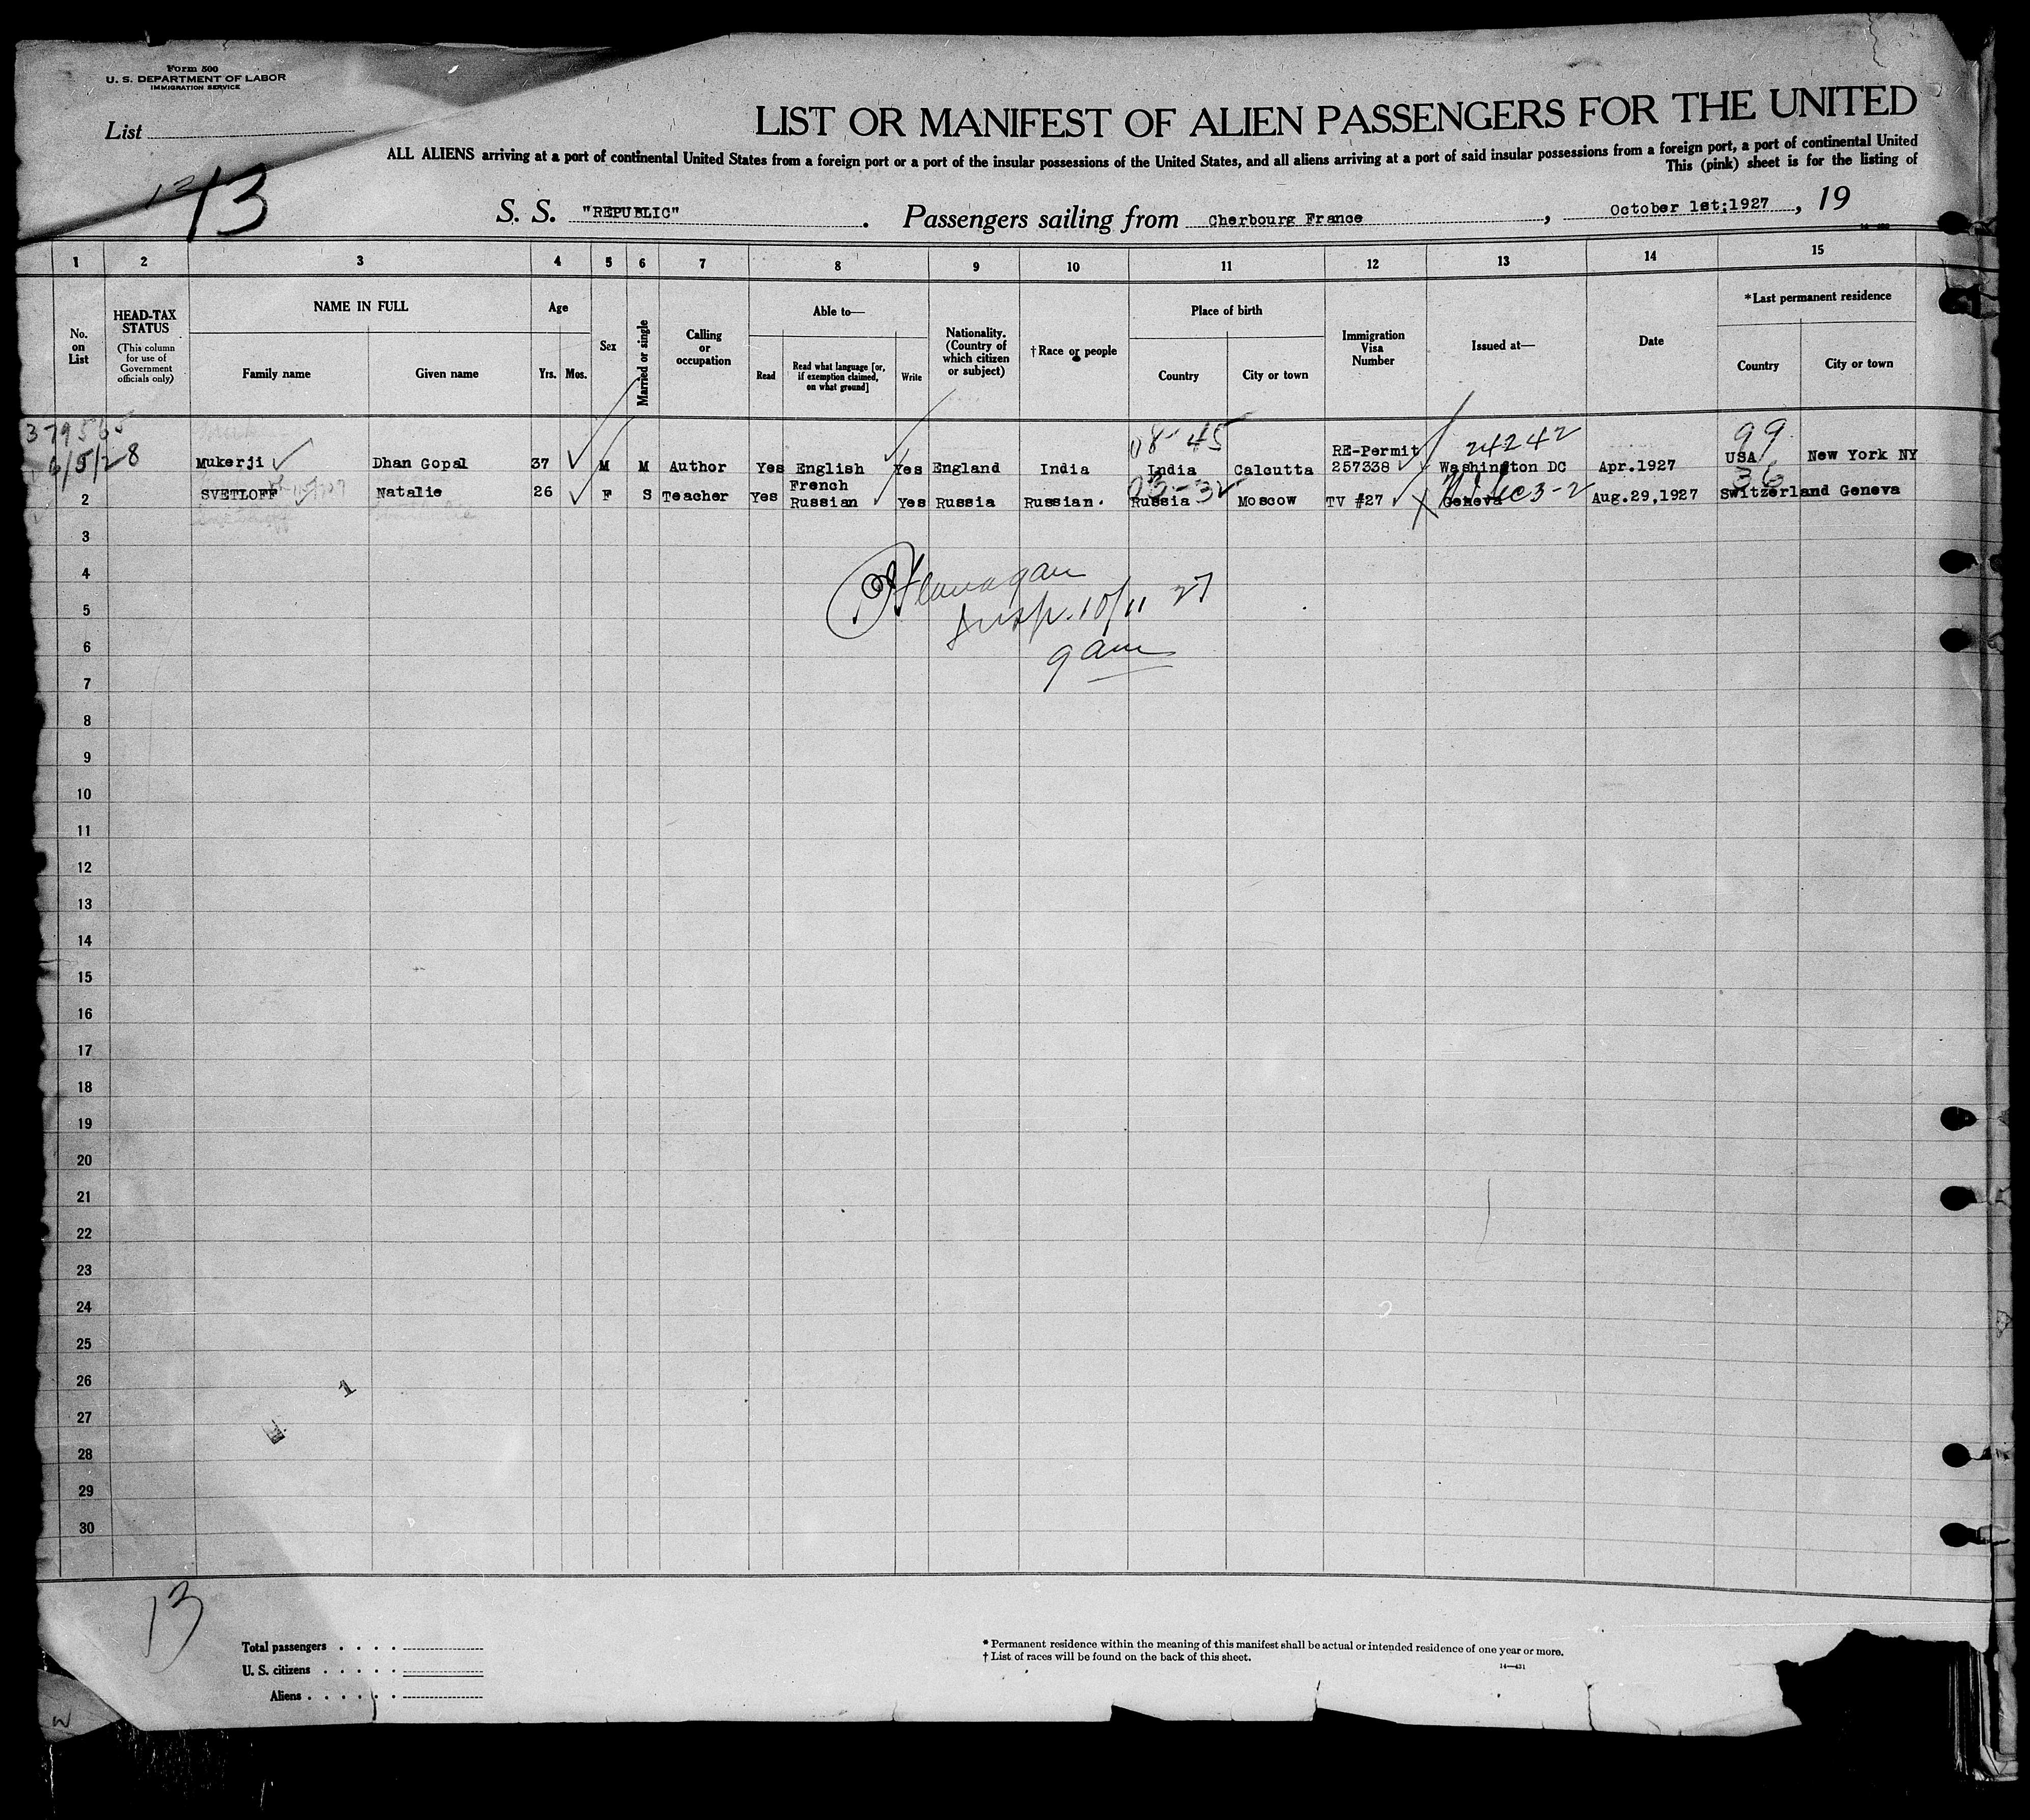 Form 500
U. S. DEPARTMENT OF LABOR
IMMIGRATION SERVICE
List
LIST OR MANIFEST OF ALIEN PASSENGERS FOR THE UNITED
ALL ALIENS arriving at a port of continental United States from a foreign port or a port of the insular possessions of the United States, and all aliens arriving at a port of said insular possessions from a foreign port, a port of continental United
This (pink) sheet is for the listing of
13
S. S. "REPUBLIC". Passengers sailing from Cherbourg France, October 1st;1927, 19
1 2 3 4 5 6 7 8 9 10 11 12 13 14 15
No. on List
HEAD-TAX STATUS
(This column for use of Government officials only)
NAME IN FULL
Family name
Given name
Age
Yrs.
Mos.
Sex
Married or single
Calling or occupation
Able to—
Read
Read what language [or, if exemption claimed, on what ground]
Write
Nationality. (Country of which citizen or subject)
†Race or people
Place of birth
Country
City or town
Immigration Visa Number
Issued at—
Date
*Last permanent residence
Country
City or town
379565
6/5/28
08-45
24242
99
Mukerji Dhan Gopal 37 M M Author Yes English Yes England India India Calcutta RE-Permit 257338 Washington DC Apr.1927 USA New York NY
03-32
36
2 SVETLOFF Natalie 26 F S Teacher Yes French Russian Yes Russia Russian. Russia Moscow TV #27 Geneva Aug.29,1927 Switzerland Geneva
3
4
Flanagan
5
Insp. 10/11 27
6
9 am
7
8
9
10
11
12
13
14
15
16
17
18
19
20
21
22
23
24
25
26
1
27
28
29
30
13
Total passengers
U. S. citizens
Aliens
* Permanent residence within the meaning of this manifest shall be actual or intended residence of one year or more.
† List of races will be found on the back of this sheet.
14—431